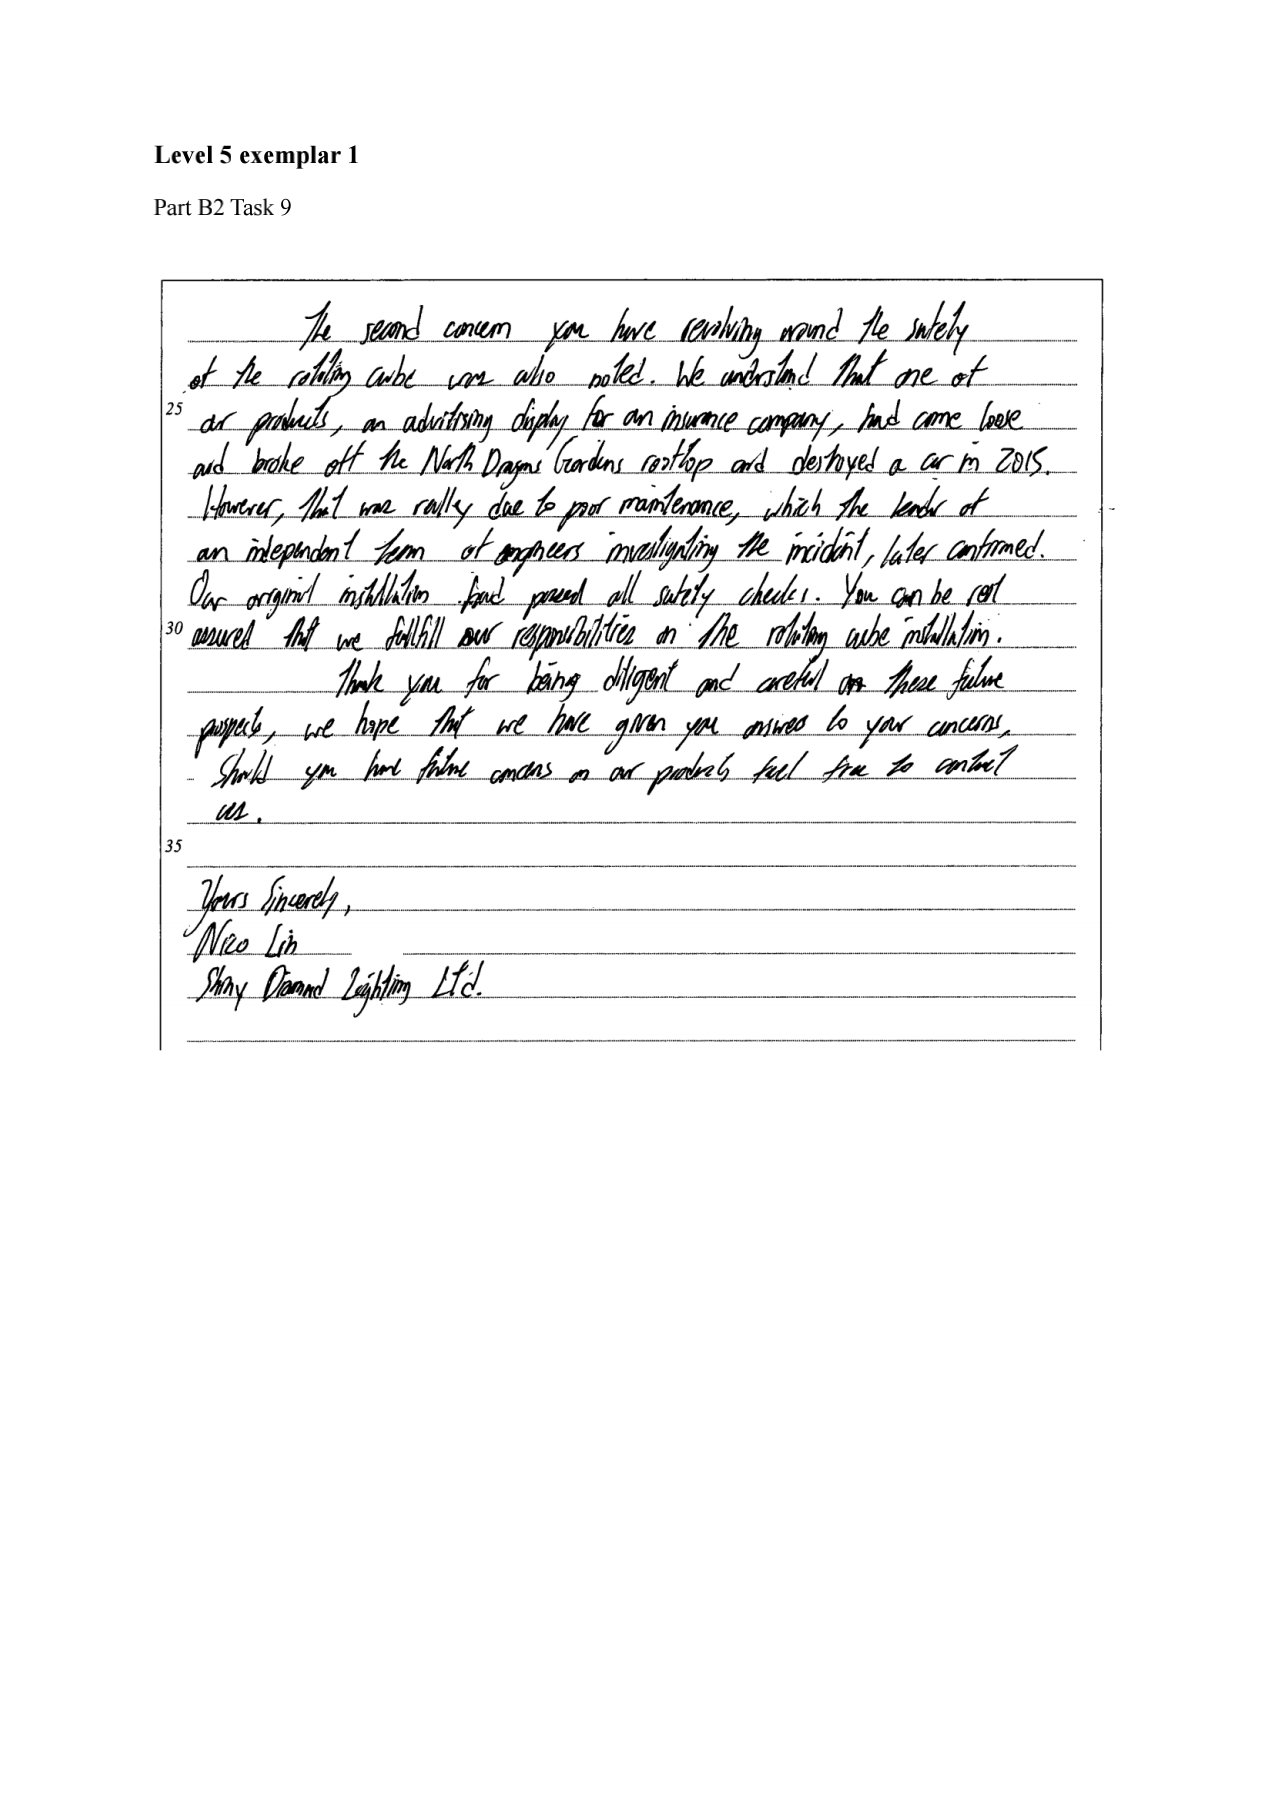 Level 5 exemplar 1
Part B2 Task 9
The second concern you have revolving around the safety
of the rotating cube was also noted. We understand that one of
25
our products, an advertising display for an insurance company, had come loose
and broke off the North Dragons Gardens rooftop and destroyed a car in 2015.
However, that was really due to poor maintenance, which the leader of
an independent team of engineers investigating the incident, later confirmed.
Our original installation had passed all safety checks. You can be rest
30
assured that we fullfill our responsibilities on the rotating cube installation.
Thank you for being diligent and careful on these future
prospects, we hope that we have given you answers to your concerns,
Should you have future concerns on our products fuel free to contact
us.
35
Yours Sincerely,
Nico Lin
Shiny Diamond Lighting Ltd.